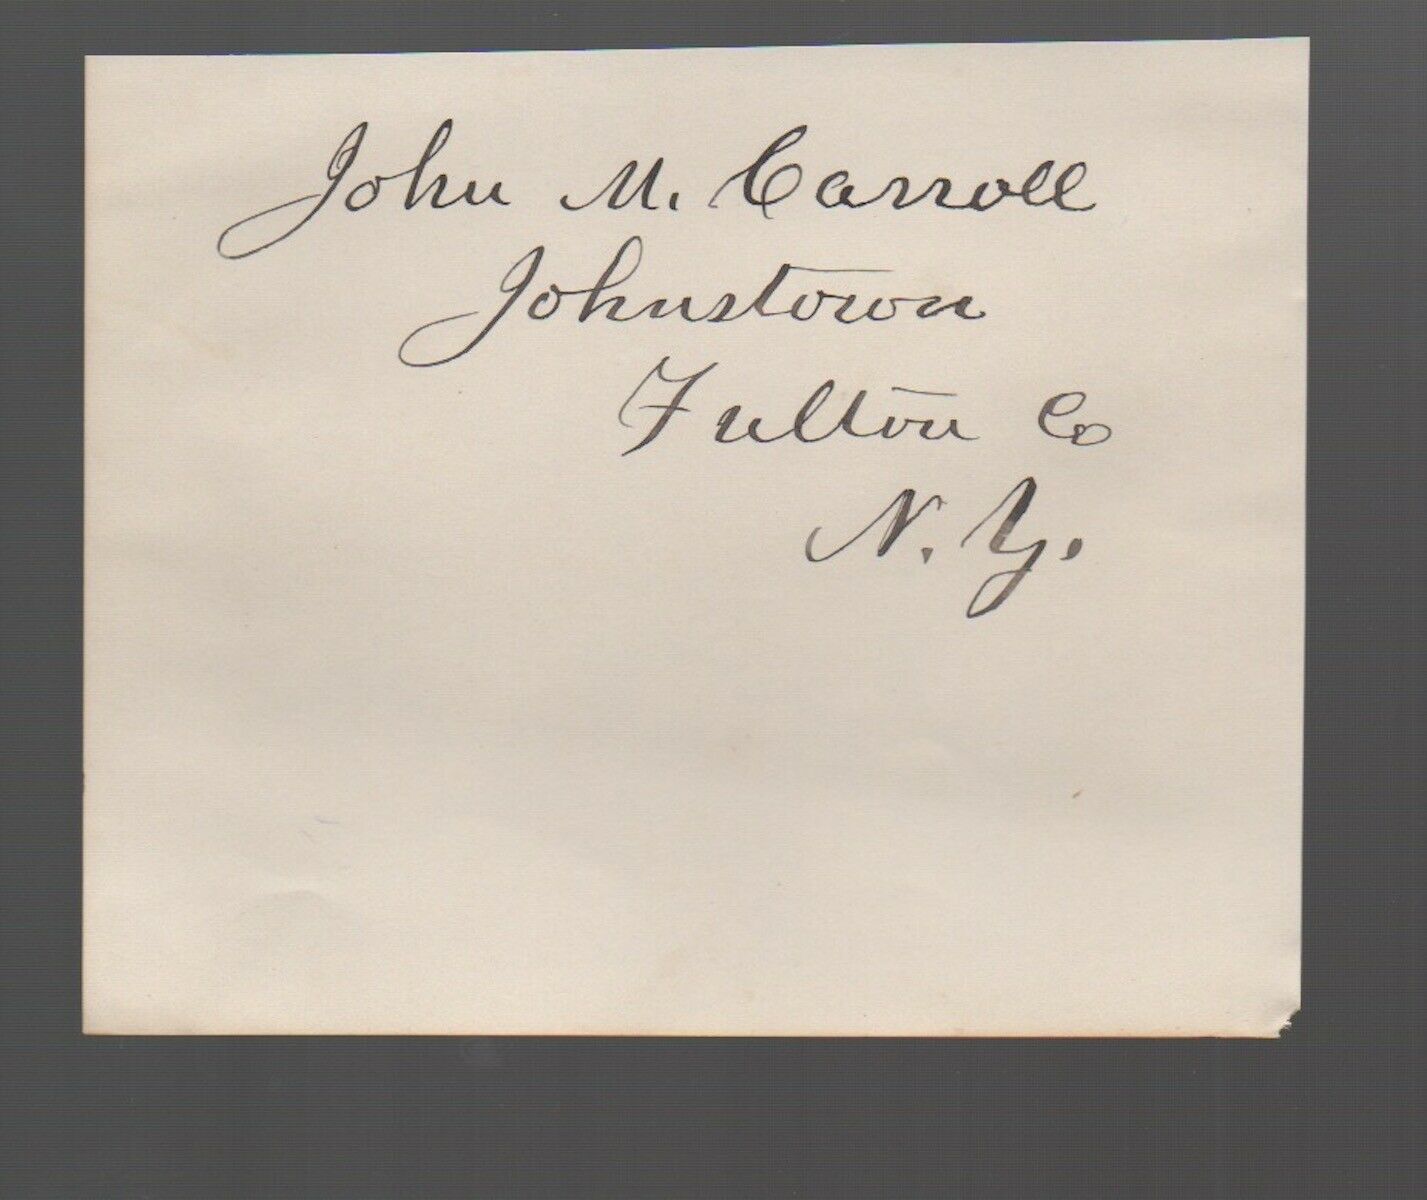 John M. Carroll
Johnstown
Fulton Co
N. Y.